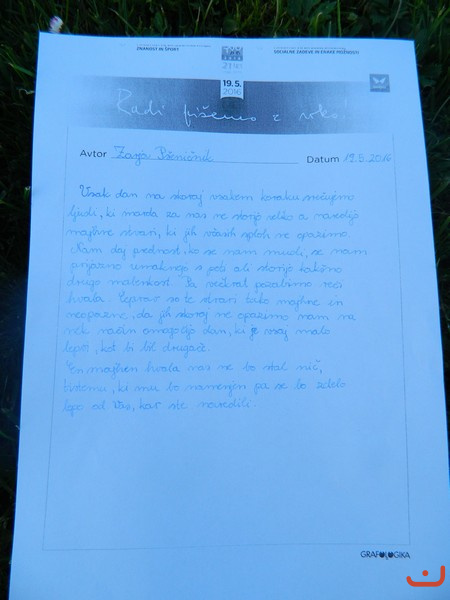 ZNANOST IN ŠPORT
SOCIALNE ZADEVE IN ENAKE MOŽNOSTI
19.5.
2016
Radi pišemo z roko
Avtor Zarja Pšeničnik Datum 19.5.2016
Vsak dan na skoraj vsakem koraku srečujemo
ljudi, ki morda za nas ne storijo veliko a naredijo
majhne stvari, ki jih včasih sploh ne opazimo.
Nam daj prednost, ko se nam mudi, se nam
prijazno umaknejo s poti ali storijo kakšno
drugo malenkost. Pa večkrat pozabimo reči
hvala. Čeprav so te stvari tako majhne in
neopazne, da jih skoraj ne opazimo nam na
nek način omogočijo dan, ki je vsaj malo
lepši, kot bi bil drugače.
En majhen hvala nas ne bo stal nič,
tistemu, ki mu bo namenjen pa se bo zdelo
lepo od vas, kar ste naredili.
GRAFOLOGIKA